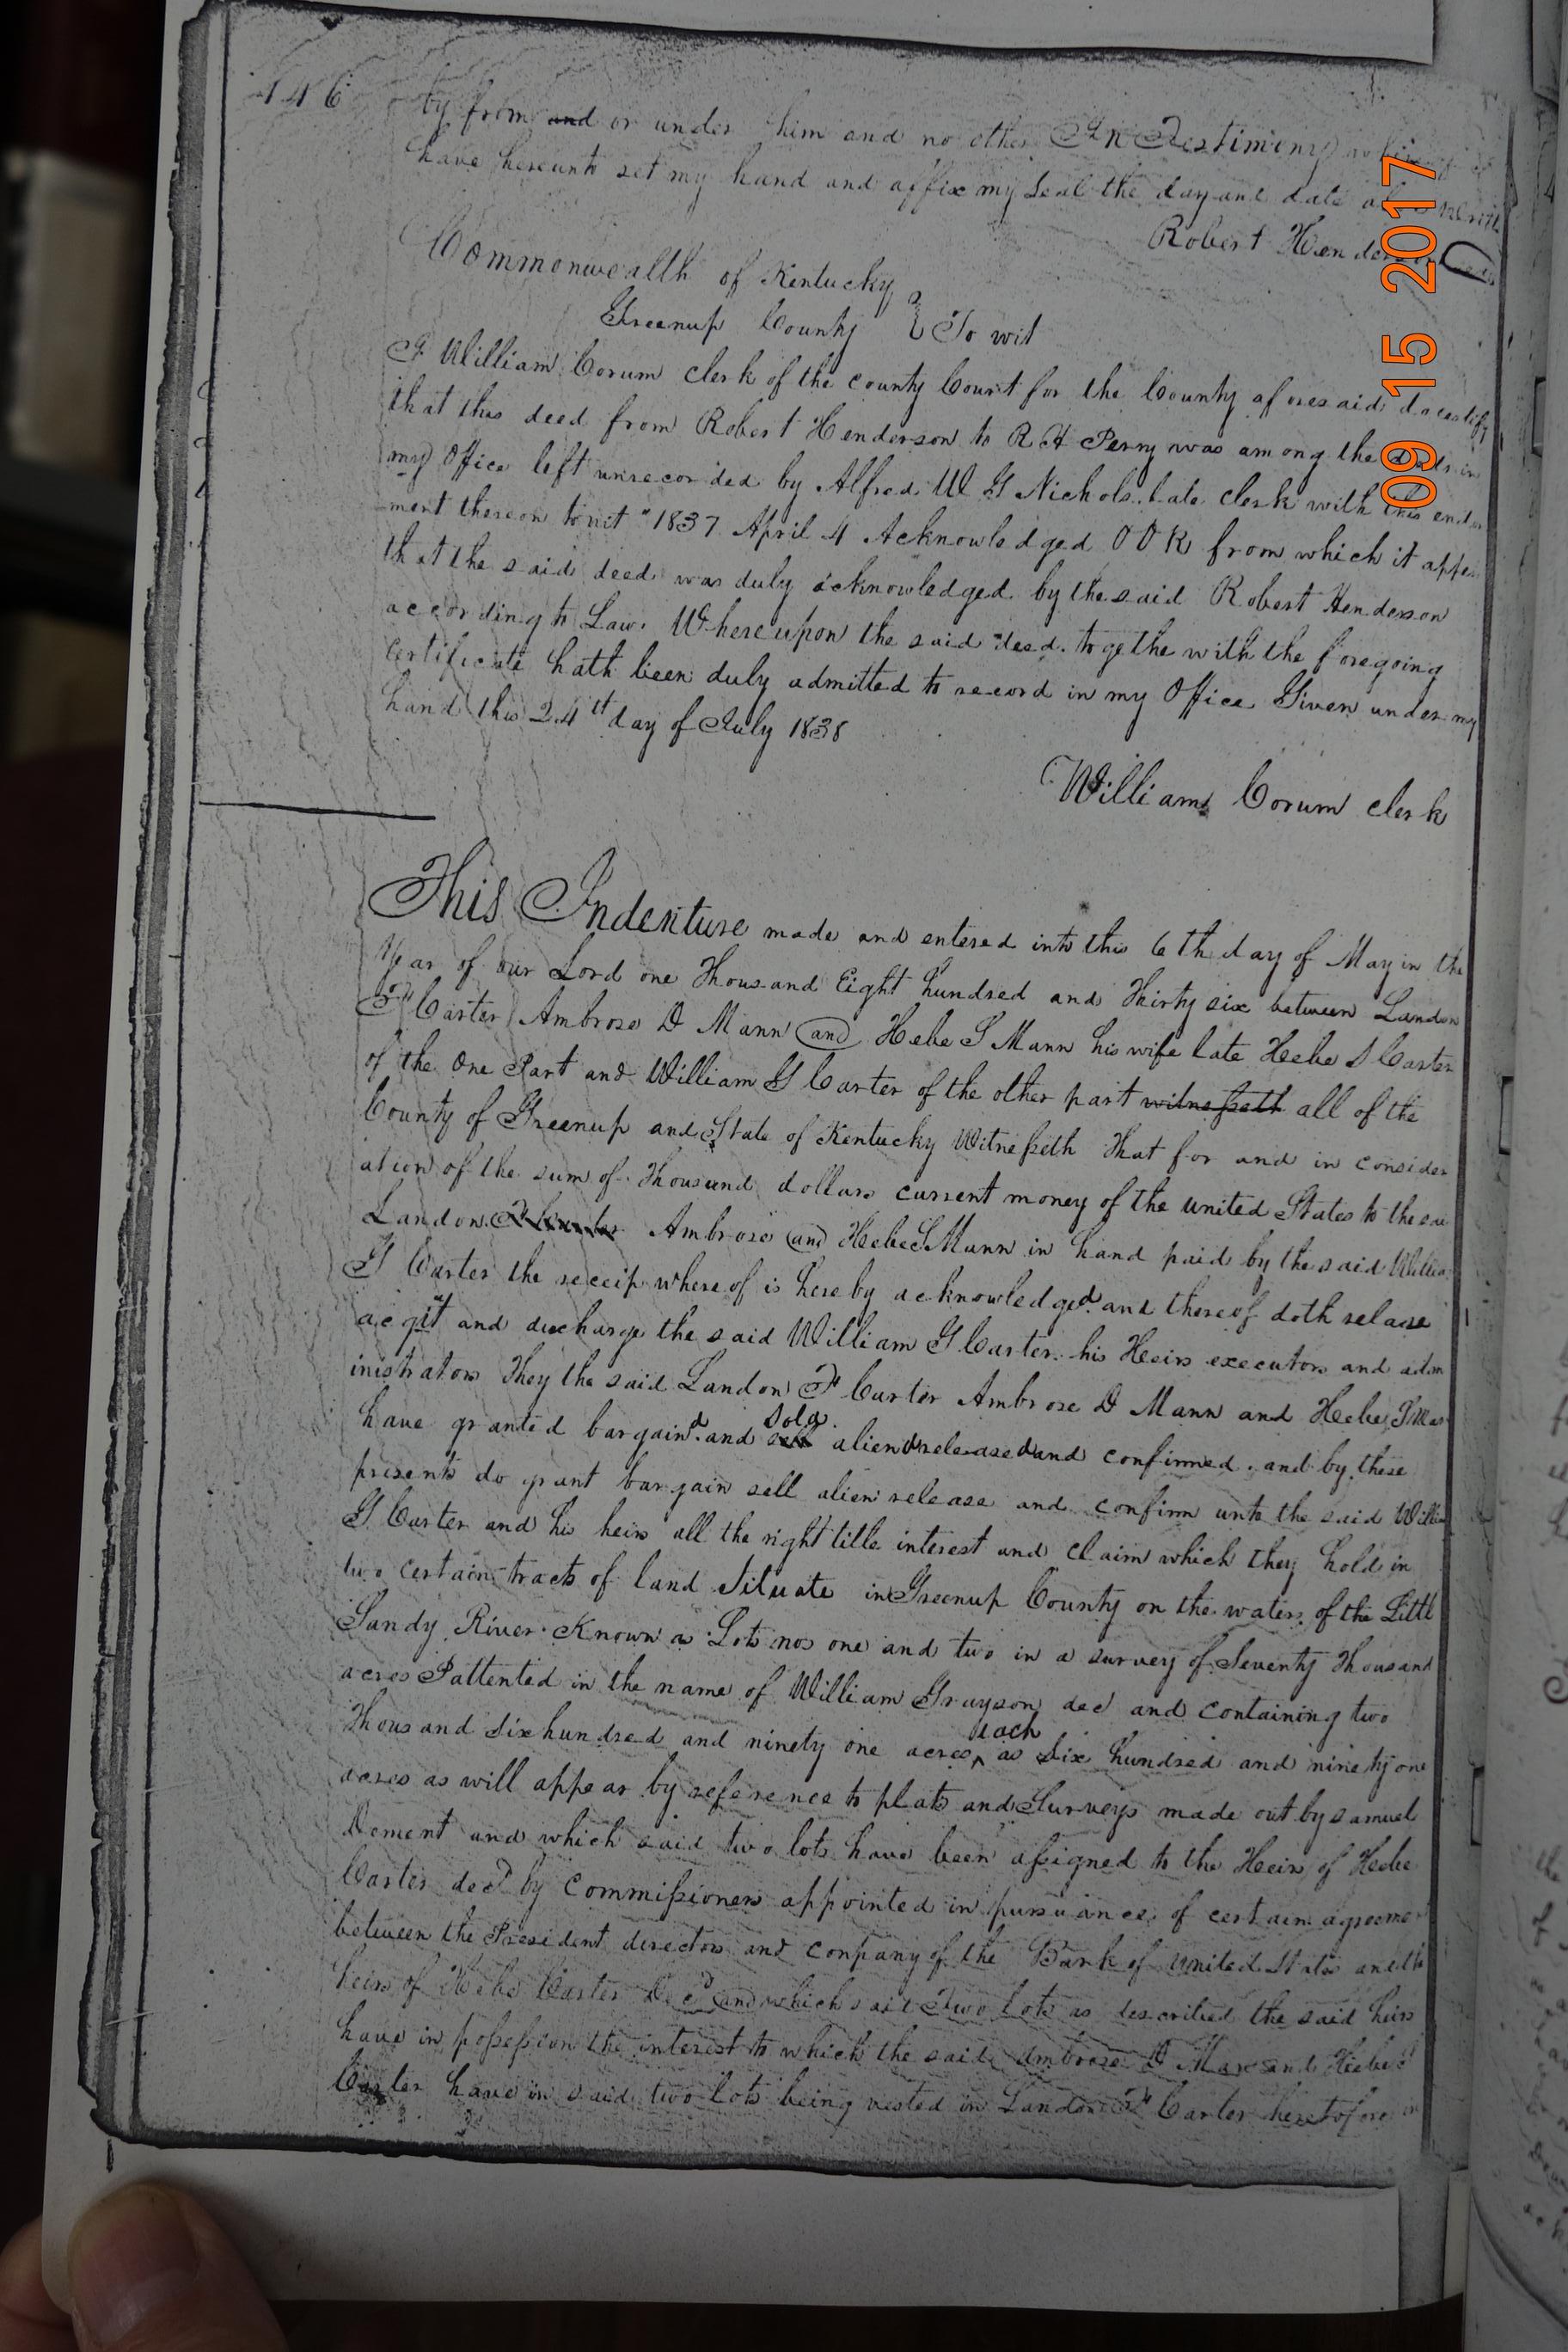 146
by from and or under him and no other In Testimony whereof I
have hereunto set my hand and affix my seal the day and date above
Robert Henderson
Commonwealth of Kentucky
Greenup County } To wit
I William Corum clerk of the county Court for the County aforesaid do certify
that this deed from Robert Henderson to R H Perry was among the deeds in
my Office left unrecorded by Alfred W G Nichols late clerk with this endor
ment thereon towit "1837 April 4 Acknowledged O O R from which it appe
that the said deed was duly acknowledged by the said Robert Henderson
according to Law. Whereupon the said deed. togethe with the foregoing
Certificate hath been duly admitted to record in my Office Given under my
hand this 24th day of July 1838
William Corum clerk
This Indenture made and entered into this 6th day of May in the
Year of our Lord one Thousand Eight hundred and Thirty six between Landon
F Carter Ambrose D Mann and Hebe S Mann his wife late Heebe S Carter
of the One Part and William G Carter of the other part witnesseth all of the
County of Greenup and State of Kentucky Witnesseth That for and in consider
ation of the sum of Thousand dollars current money of the united States to the sai
Landon F Carter Ambrose and Hebe S Mann in hand paid by the said Willia
G Carter the receip whereof is hereby acknowledged and thereof doth relase
acqit and discharge the said William G Carter his Heirs executors and adm
inistrators They the said Landon F Carter Ambrose D Mann and Hebe S Man
have granted bargaind and sell sold aliend released and confirmed. and by these
presents do grant bargain sell alien release and confirm unto the said Willia
G Carter and his heirs all the right title interest and claim which they hold in
two certain tracts of land Situate in Greenup County on the waters of the Littl
Sandy River Known as Lots nos one and two in a survey of Seventy Thousand
acres Pattented in the name of William Grayson dec and containing two
Thousand Six hundred and ninety one acres each as Six hundred and ninety one
acres as will appear by reference to plats and Surveys made out by samuel
Dement and which said two lots have been assigned to the Heirs of Hebe
Carter decd by Commissioners appointed in pursuance of certain agreeme
between the President directors and conpany of the Bank of United States and the
heirs of Hebe Carter Decd and which said Two Lots as described the said heirs
have in possession the interest to which the said Ambrose D Man and Hebe S
Carter have in said two lots being vested in Landon F Carter heretofore
09 15 2017